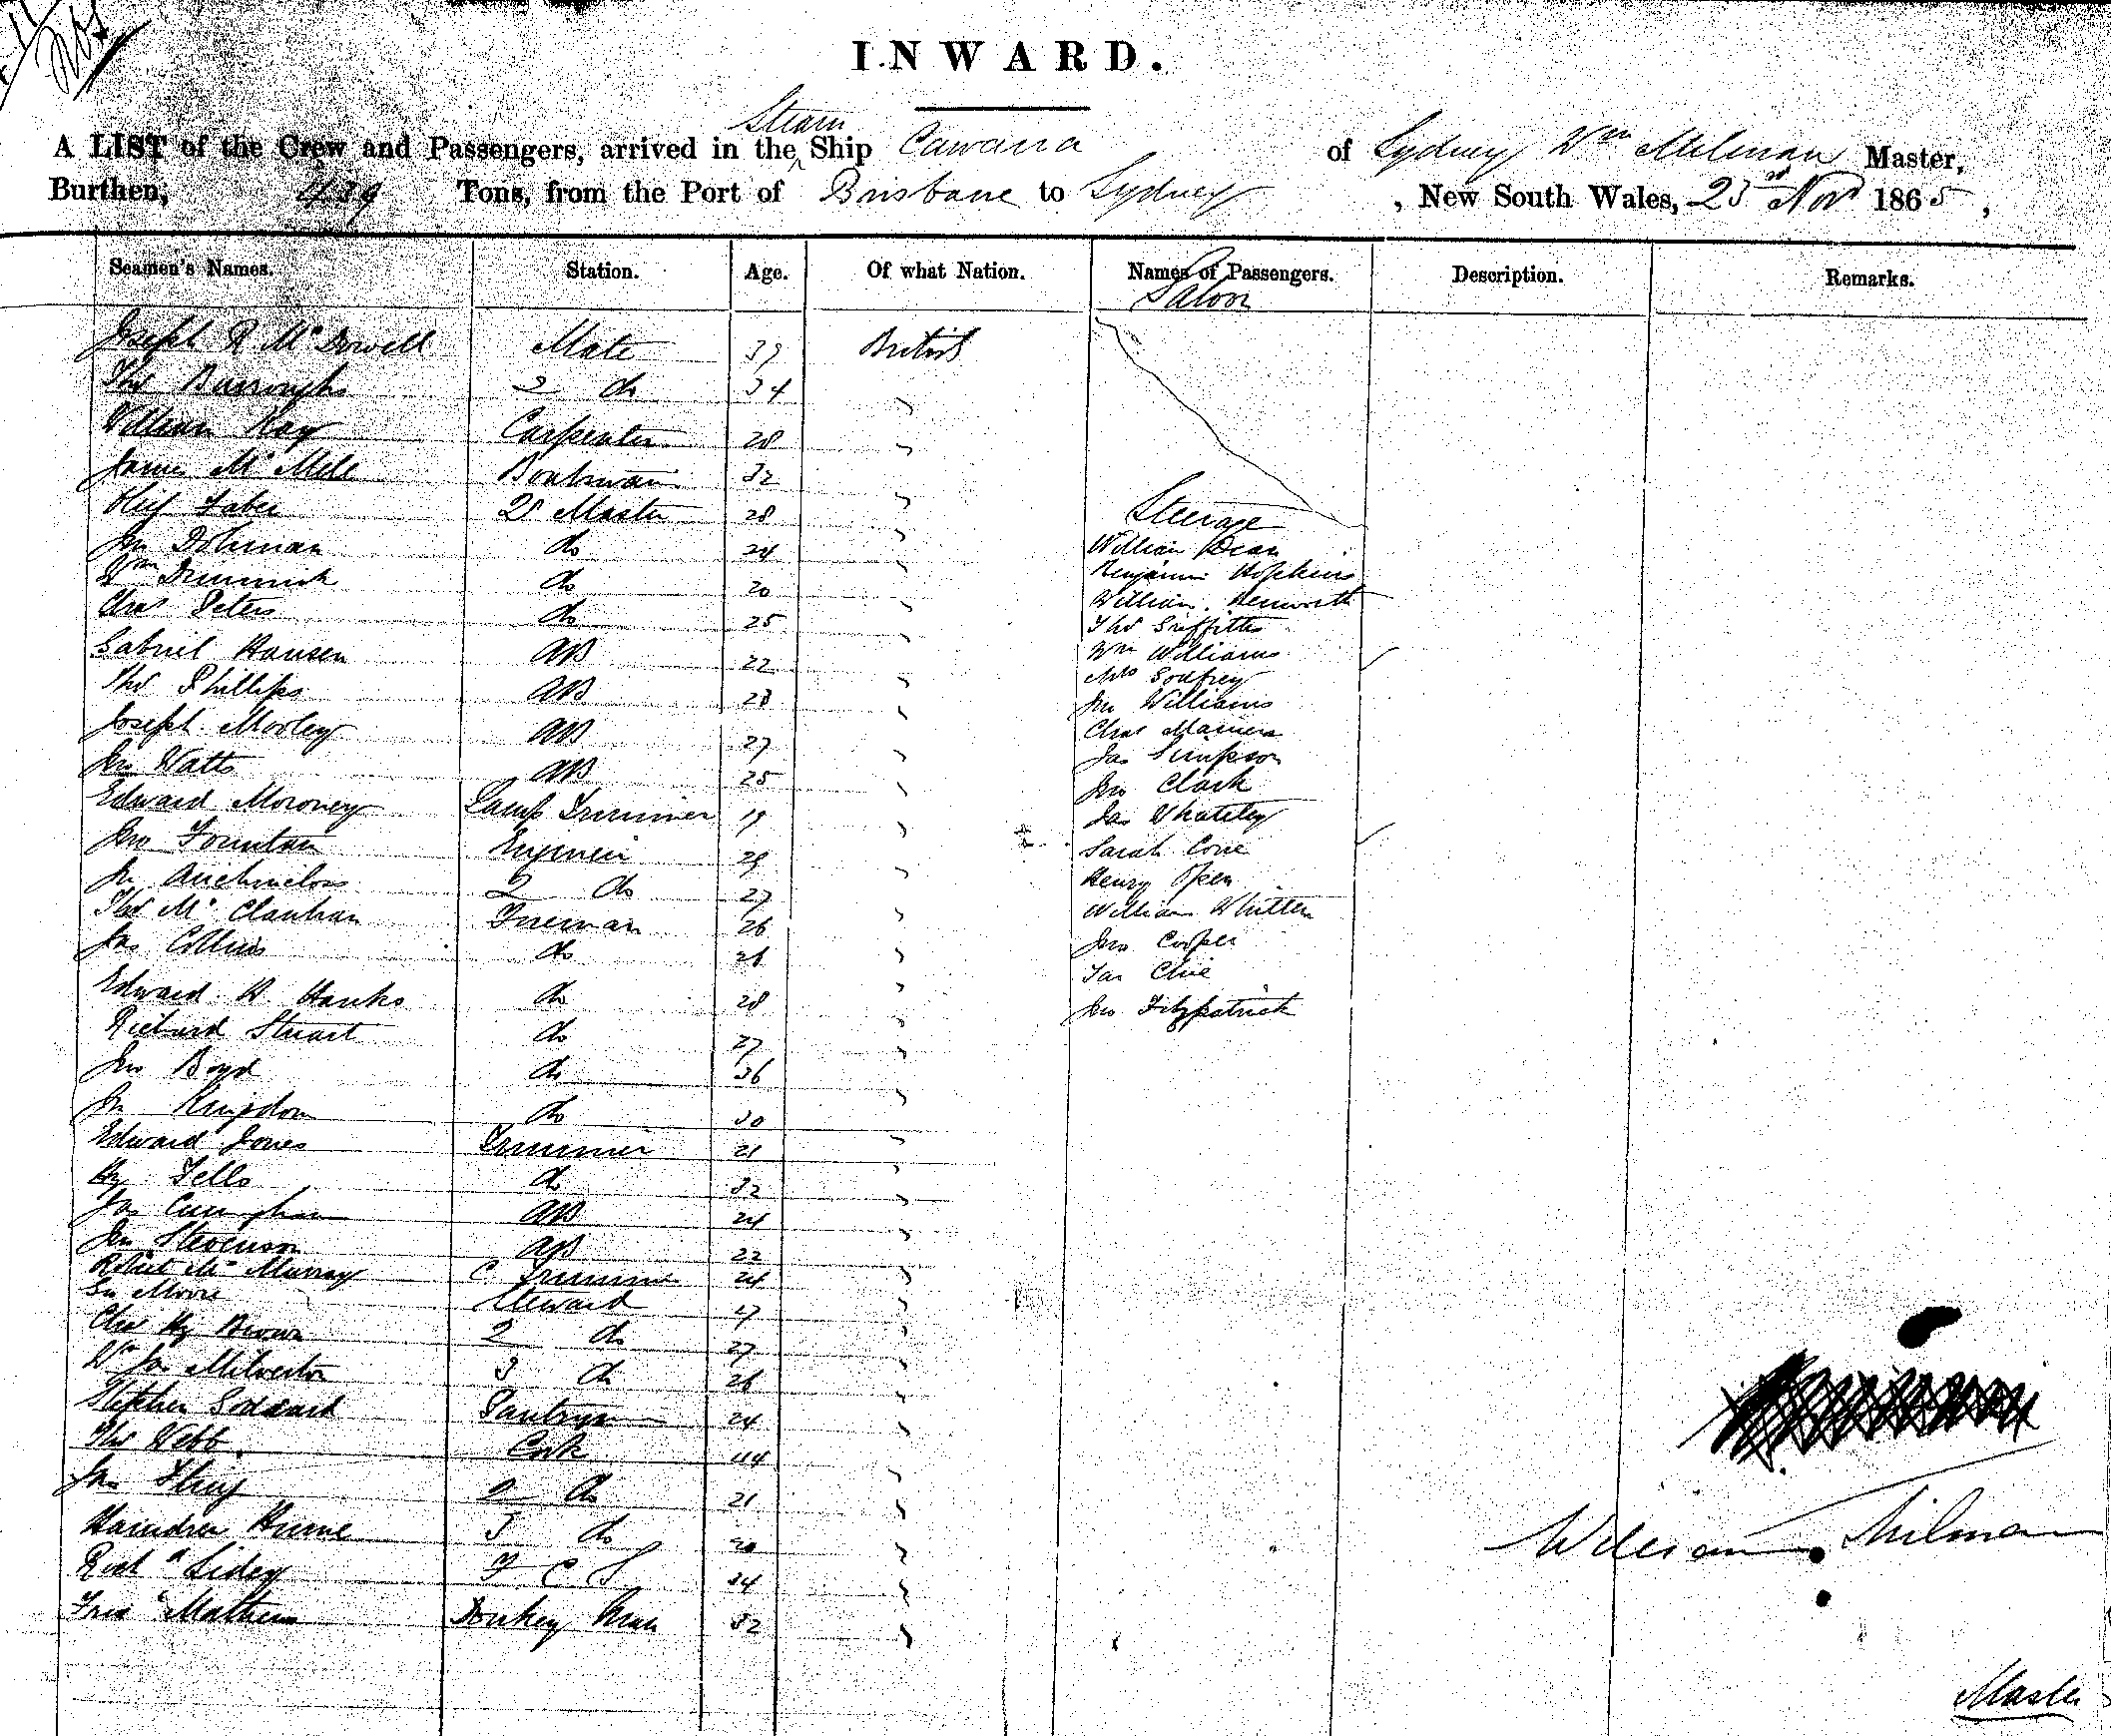 INWARD.
Steam
A LIST of the Crew and Passengers, arrived in the Ship Cawarra of Sydney Wm Milman Master,
Burthen, 439 Tons, from the Port of Brisbane to Sydney, New South Wales, 23rd Nov 1865,
Seamen's Names. Station. Age. Of what Nation. Names of Passengers. Description. Remarks.
Saloon
Joseph R McDowell Mate 39 British
Thos Burroughs 2 do 34 "
William Kay Carpenter 28 "
James McMill Boatswain 32 "
Faber Qr Master 28 " Steerage
Jn Dohman do 24 " William Dean
Wm Dimmick do 20 " Benjamin Hopkins
Chas Peters do 25 " William Kenworth
Thos Griffiths
Gabriel Hansen AB 22 " Wm Williams
Thos Phillips AB 28 " Mrs Godfrey
Jn Williams
Joseph Morley AB 27 " Chas
Jno Watts AB 25 " Jas Simpson
Jno Clark
Edward Moroney Lamp Trimmer 19 " Jas Whateley
Jno Fountain Engineer 29 " Sarah
Jn 2 do 27 " Henry
Thos Fireman 26 " William Whitten
Jas Collins do 26 " Jno Cooper
Jas
Edward W Hanks do 28 " Jno Fitzpatrick
Richard Stuart do 27 "
Jno Boyd do 36 "
Jn Kingdom do 30 "
Edward Jones Trimmer 21 "
Hy Fells do 32 "
Jas AB 24 "
Jn Stevenson AB 22 "
Robert McMurray C. Trimmer 24 "
Moore Steward 27 "
Chas Hy Brown 2 do 27 "
Wm Jas Milverton 3 do 26 "
Stephen Goddard Pantryman 24 "
Thos Webb Cook 44 "
Jas 2 do 21 "
Hume 3 do 20 "
Richd Sidey F C S 34 "
Fras Mathews Donkey Man 32 "
William Milman
Master